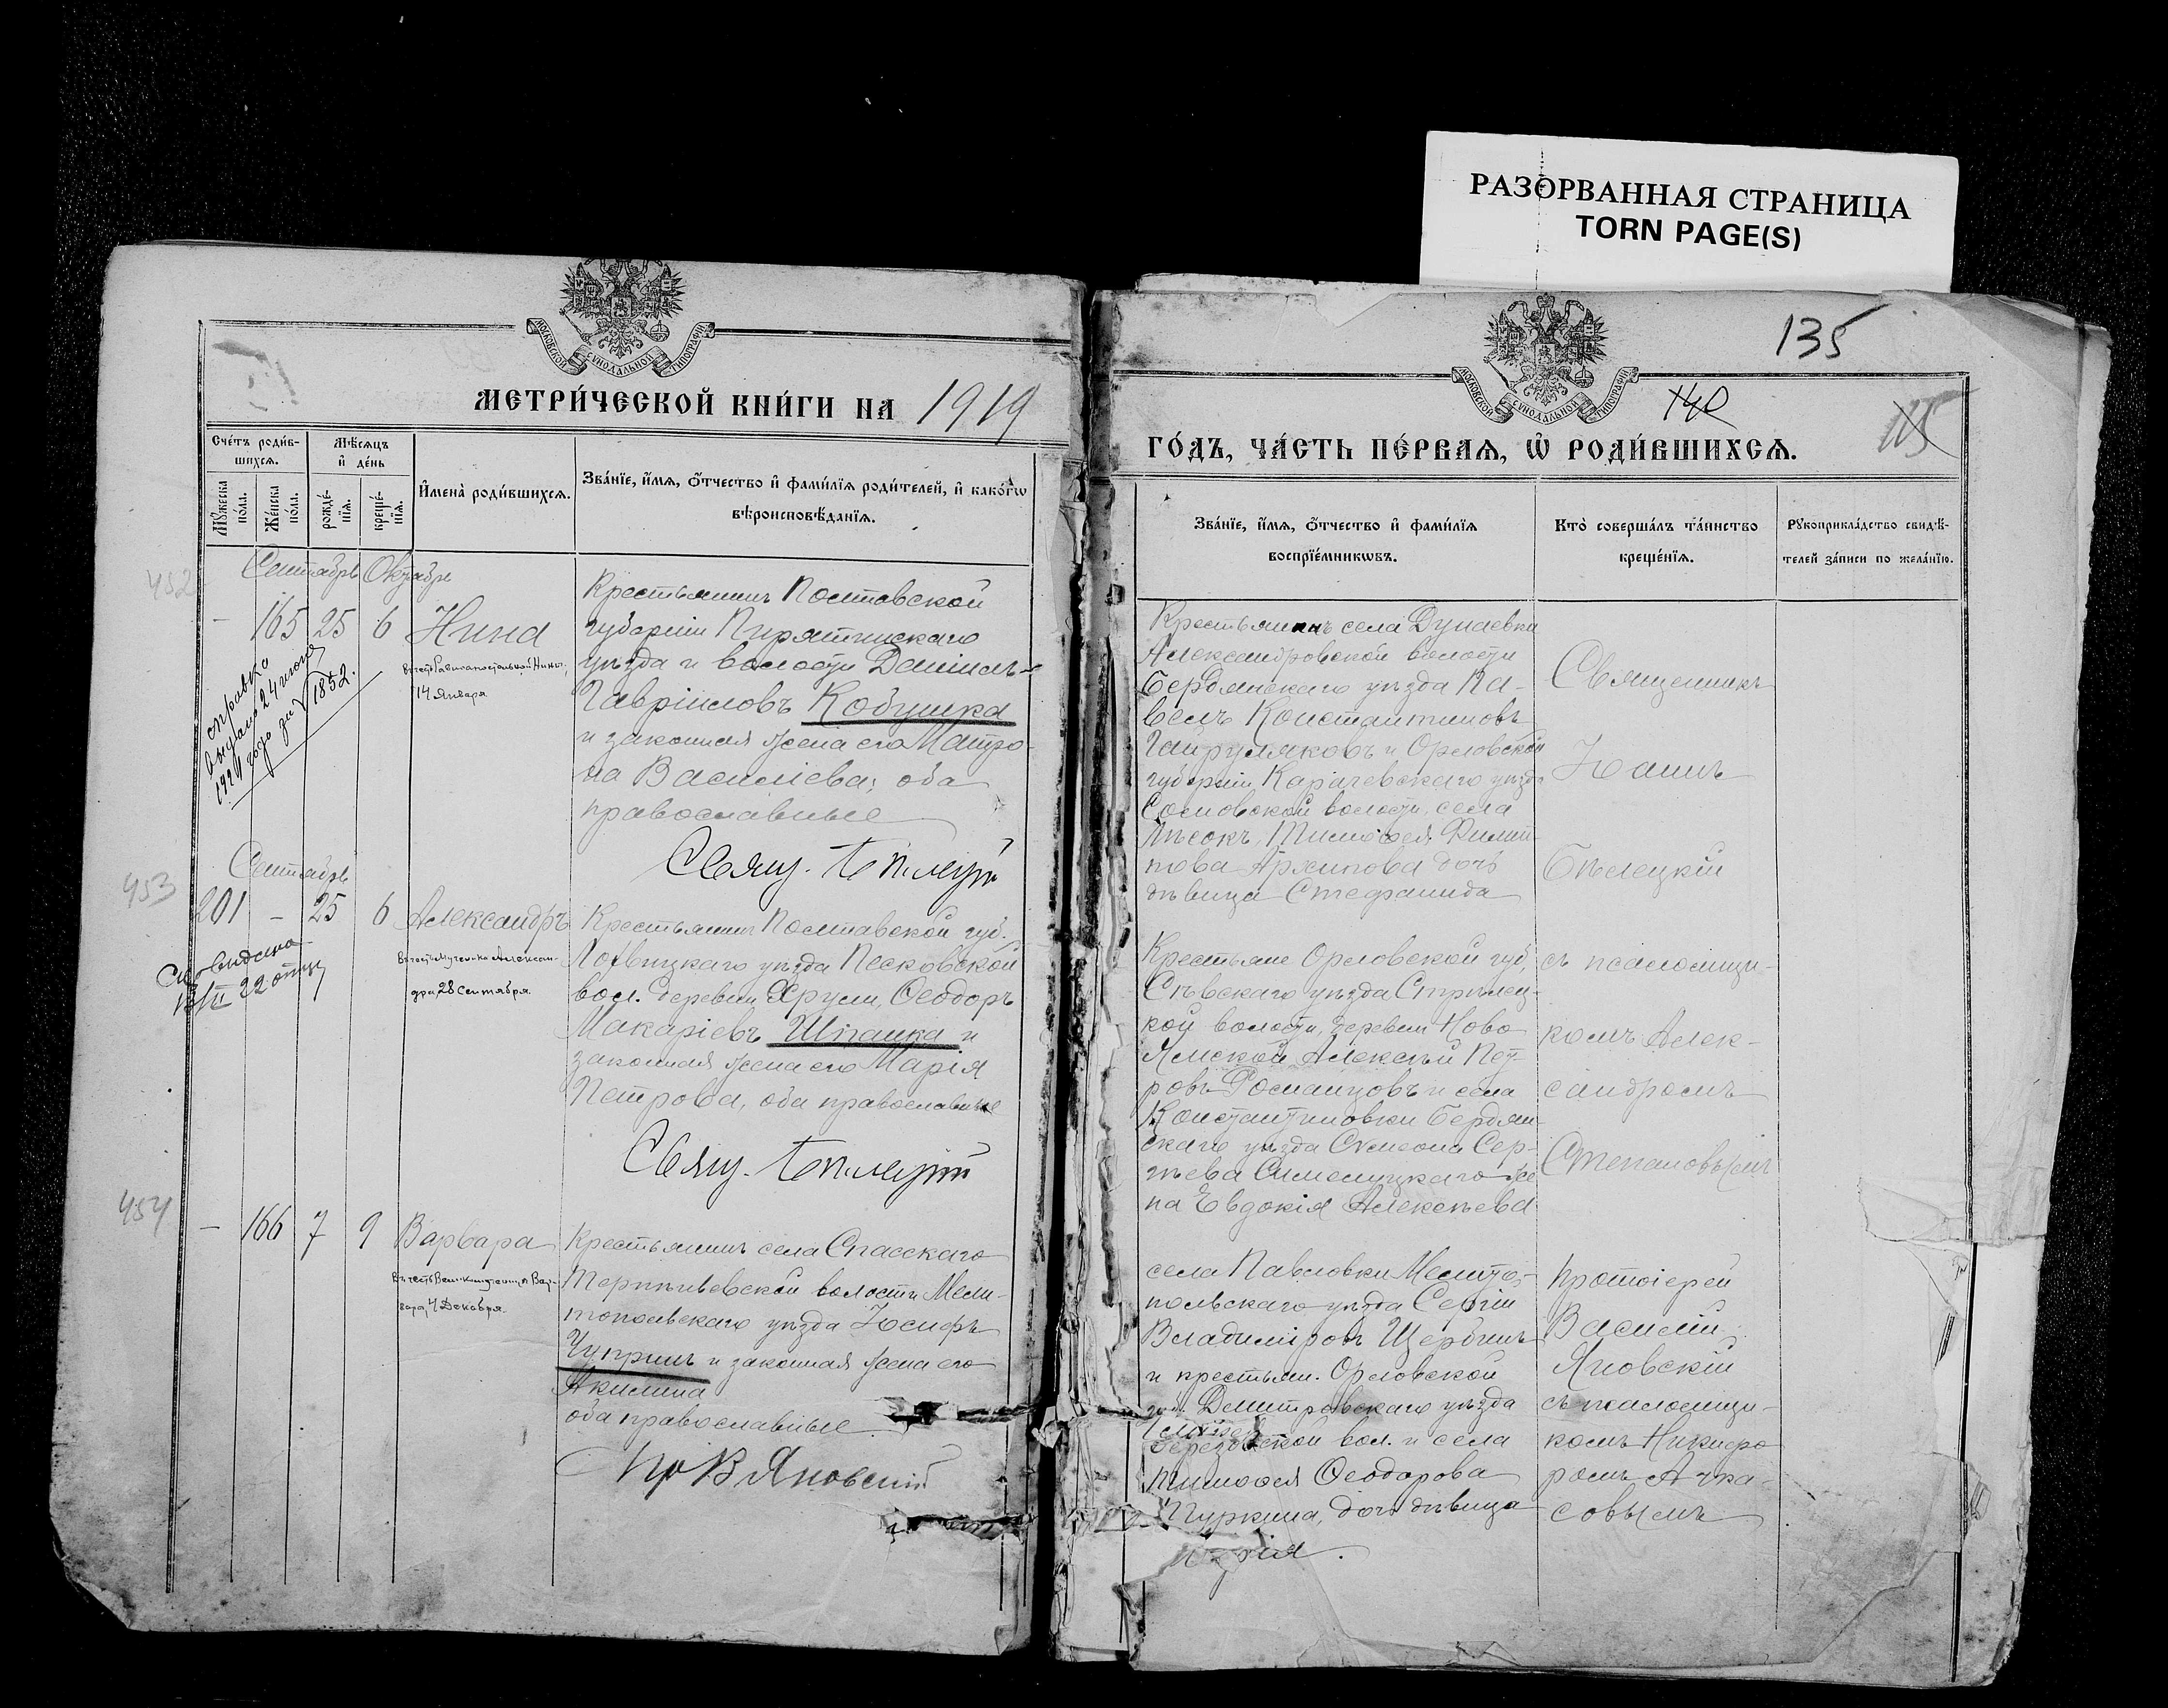 РАЗОРВАННАЯ СТРАНИЦА
TORN PAGE(S)
МОСКОВСКОЙ СѴНОДАЛЬНОЙ ТИПОГРАФІИ
МЕТРИ́ЧЕСКОЙ КНИ́ГИ НА 1919
Сче́тъ роди́в-
шихсѧ.
Мѣ́сѧцъ
и҆ де́нь
Мꙋ́жеска
по́ла.
Же́нска
по́ла.
рожде́-
нїѧ.
креще́-
нїѧ.
И҆мена̀ роди́вшихсѧ.
Зва́нїе, и҆́мѧ, ѻ҆́тчество и҆ фами́лїѧ роди́телей, и҆ како́гѡ
вѣроисповѣ́данїѧ.
452
Сентябрь Октябрь
– 165 25 6 Нина
14 Января
справка
выдана 24 июня
1924 года за № 1852.
Крестьянинъ Полтавской
губерніи Пирятинскаго
уѣзда и волости Даніилъ
Гавріиловъ Кобушка
и законная жена его Матро-
на Василіева; оба
православные
453
Сентябрь
201 – 25 6 Александръ
въ честь Мученика Алексан-
дра 28 Сентября.
Крестьянинъ Полтавской губ.
Лохвицкаго уѣзда Песковской
вол. деревни Хрули, Ѳеодоръ
Макаріевъ Шпанка и
законная жена его Марія
Петрова, оба православные
454
– 166 7 9 Варвара
въ честь Великомученицы Вар-
вара, 4 Декабря.
Крестьянинъ села Спасскаго
Терпѣньевской волости Мели-
топольскаго уѣзда Іосифъ
Чупринъ и законная жена его
Акилина
оба православные.
Пр В Яновскій
135
140
115
МОСКОВСКОЙ СѴНОДАЛЬНОЙ ТИПОГРАФІИ
ГО́ДЪ, ЧА́СТЬ ПЕ́РВАѦ, Ѡ҆ РОДИ́ВШИХСѦ.
Зва́нїе, и҆́мѧ, ѻ҆́тчество и҆ фами́лїѧ
воспрїе́мникѡвъ.
Кто̀ соверша́лъ та́инство
креще́нїѧ.
Рꙋкоприкла́дство свидѣ́-
телей за́писи по жела́нїю.
Крестьянинъ села Дунаевки
Александровской волости
Бердянскаго уѣзда Па-
велъ Константиновъ
и Орловской
губерніи Карачевскаго уѣзда
волости, села
Пѣсокъ, Тимоѳея Филип-
пова Архипова дочь
дѣвица Стефанида
Священникъ
Іоаннъ
Бѣлецкій
Крестьяне Орловской губ,
Сѣвскаго уѣзда Стрѣлец-
кой волости, деревни Ново
Ямской Алексѣй Пет-
ровъ Романцовъ и села
Константиновки Бердян-
скаго уѣзда Симеона Сер-
гѣева же-
на Евдокія Алексѣева
съ псаломщи-
комъ Алек-
сандромъ
Степановымъ
села Павловки Мелито-
польскаго уѣзда Сергій
Владиміровъ Щербинъ
и крестьян. Орловской
губ. Дмитровскаго уѣзда
вол. и села
Тимоѳея Ѳеодорова
Чуркина, дочь дѣвица
Протоіерей
Василій
Яновскій
съ псаломщи-
комъ Никифо
ромъ Ачка-
совымъ